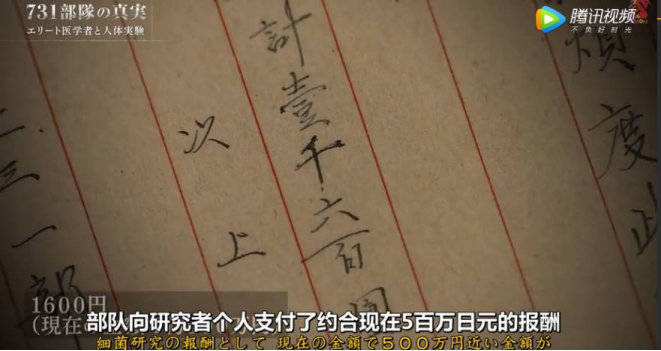 731部隊の真実
エリート医学者と人体実験
腾讯视频
不负好时光
煩度
計壹千六百圓
以上
三一部
1600円
(現在
部队向研究者个人支付了约合现在5百万日元的报酬
細菌研究の報酬として 現在の金額で500万円近い金額が